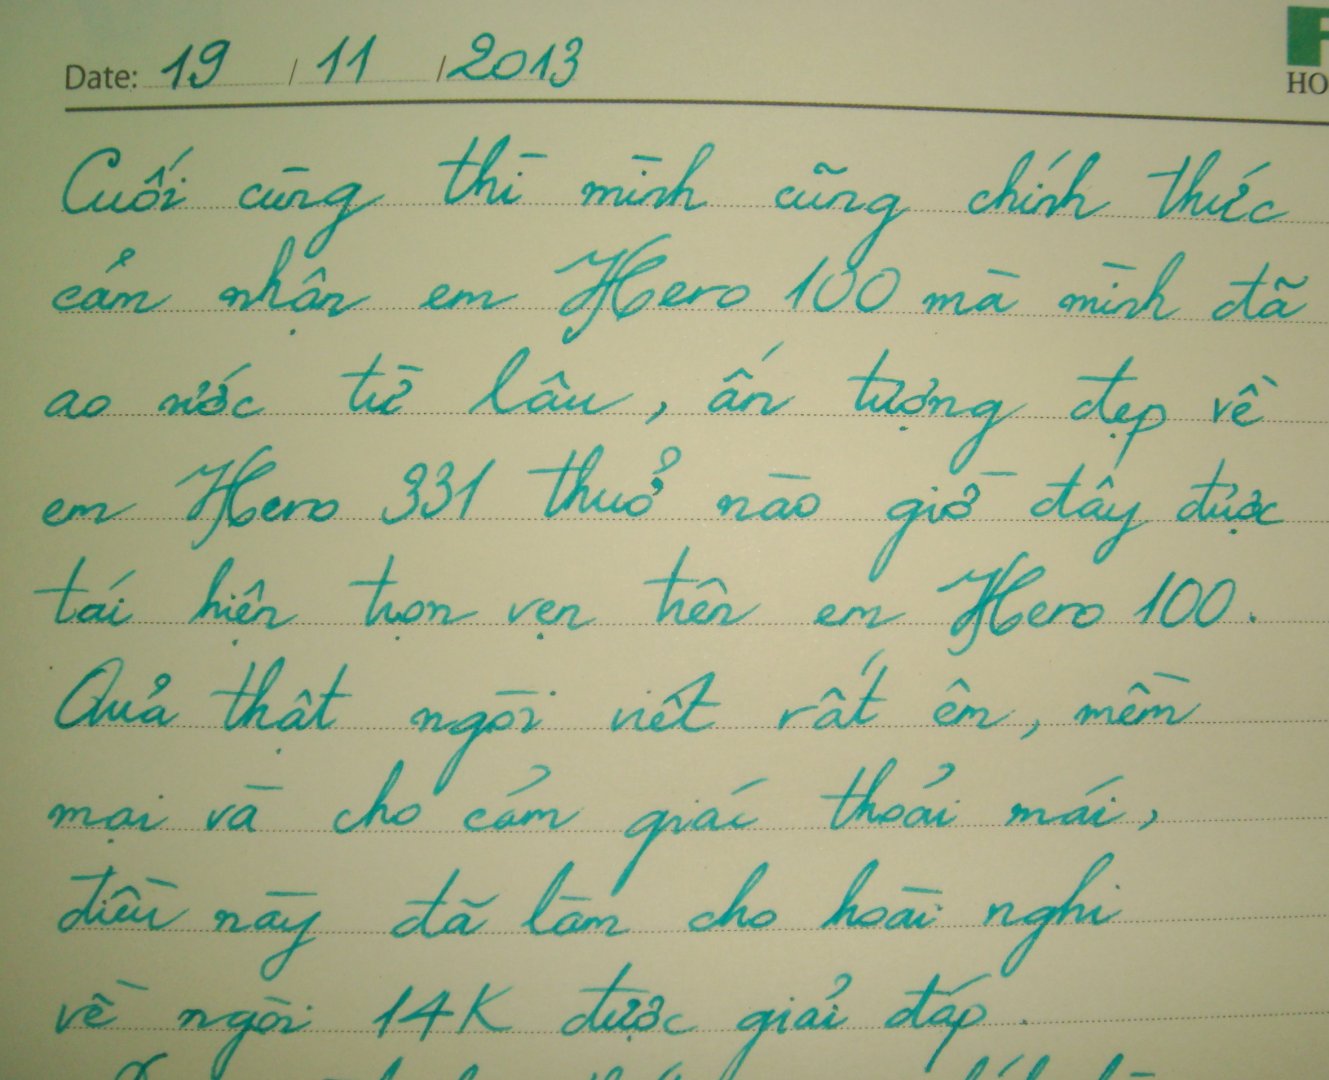 Date: 19 / 11 / 2013
HO
Cuối cùng thì mình cũng chính thức
cảm nhận em Hero 100 mà mình đã
ao ước từ lâu, ấn tượng đẹp về
em Hero 331 thuở nào giờ đây được
tái hiện trọn vẹn trên em Hero 100.
Quả thật ngòi viết rất êm, mềm
mại và cho cảm giác thoải mái,
điều này đã làm cho hoài nghi
về ngòi 14K được giải đáp.